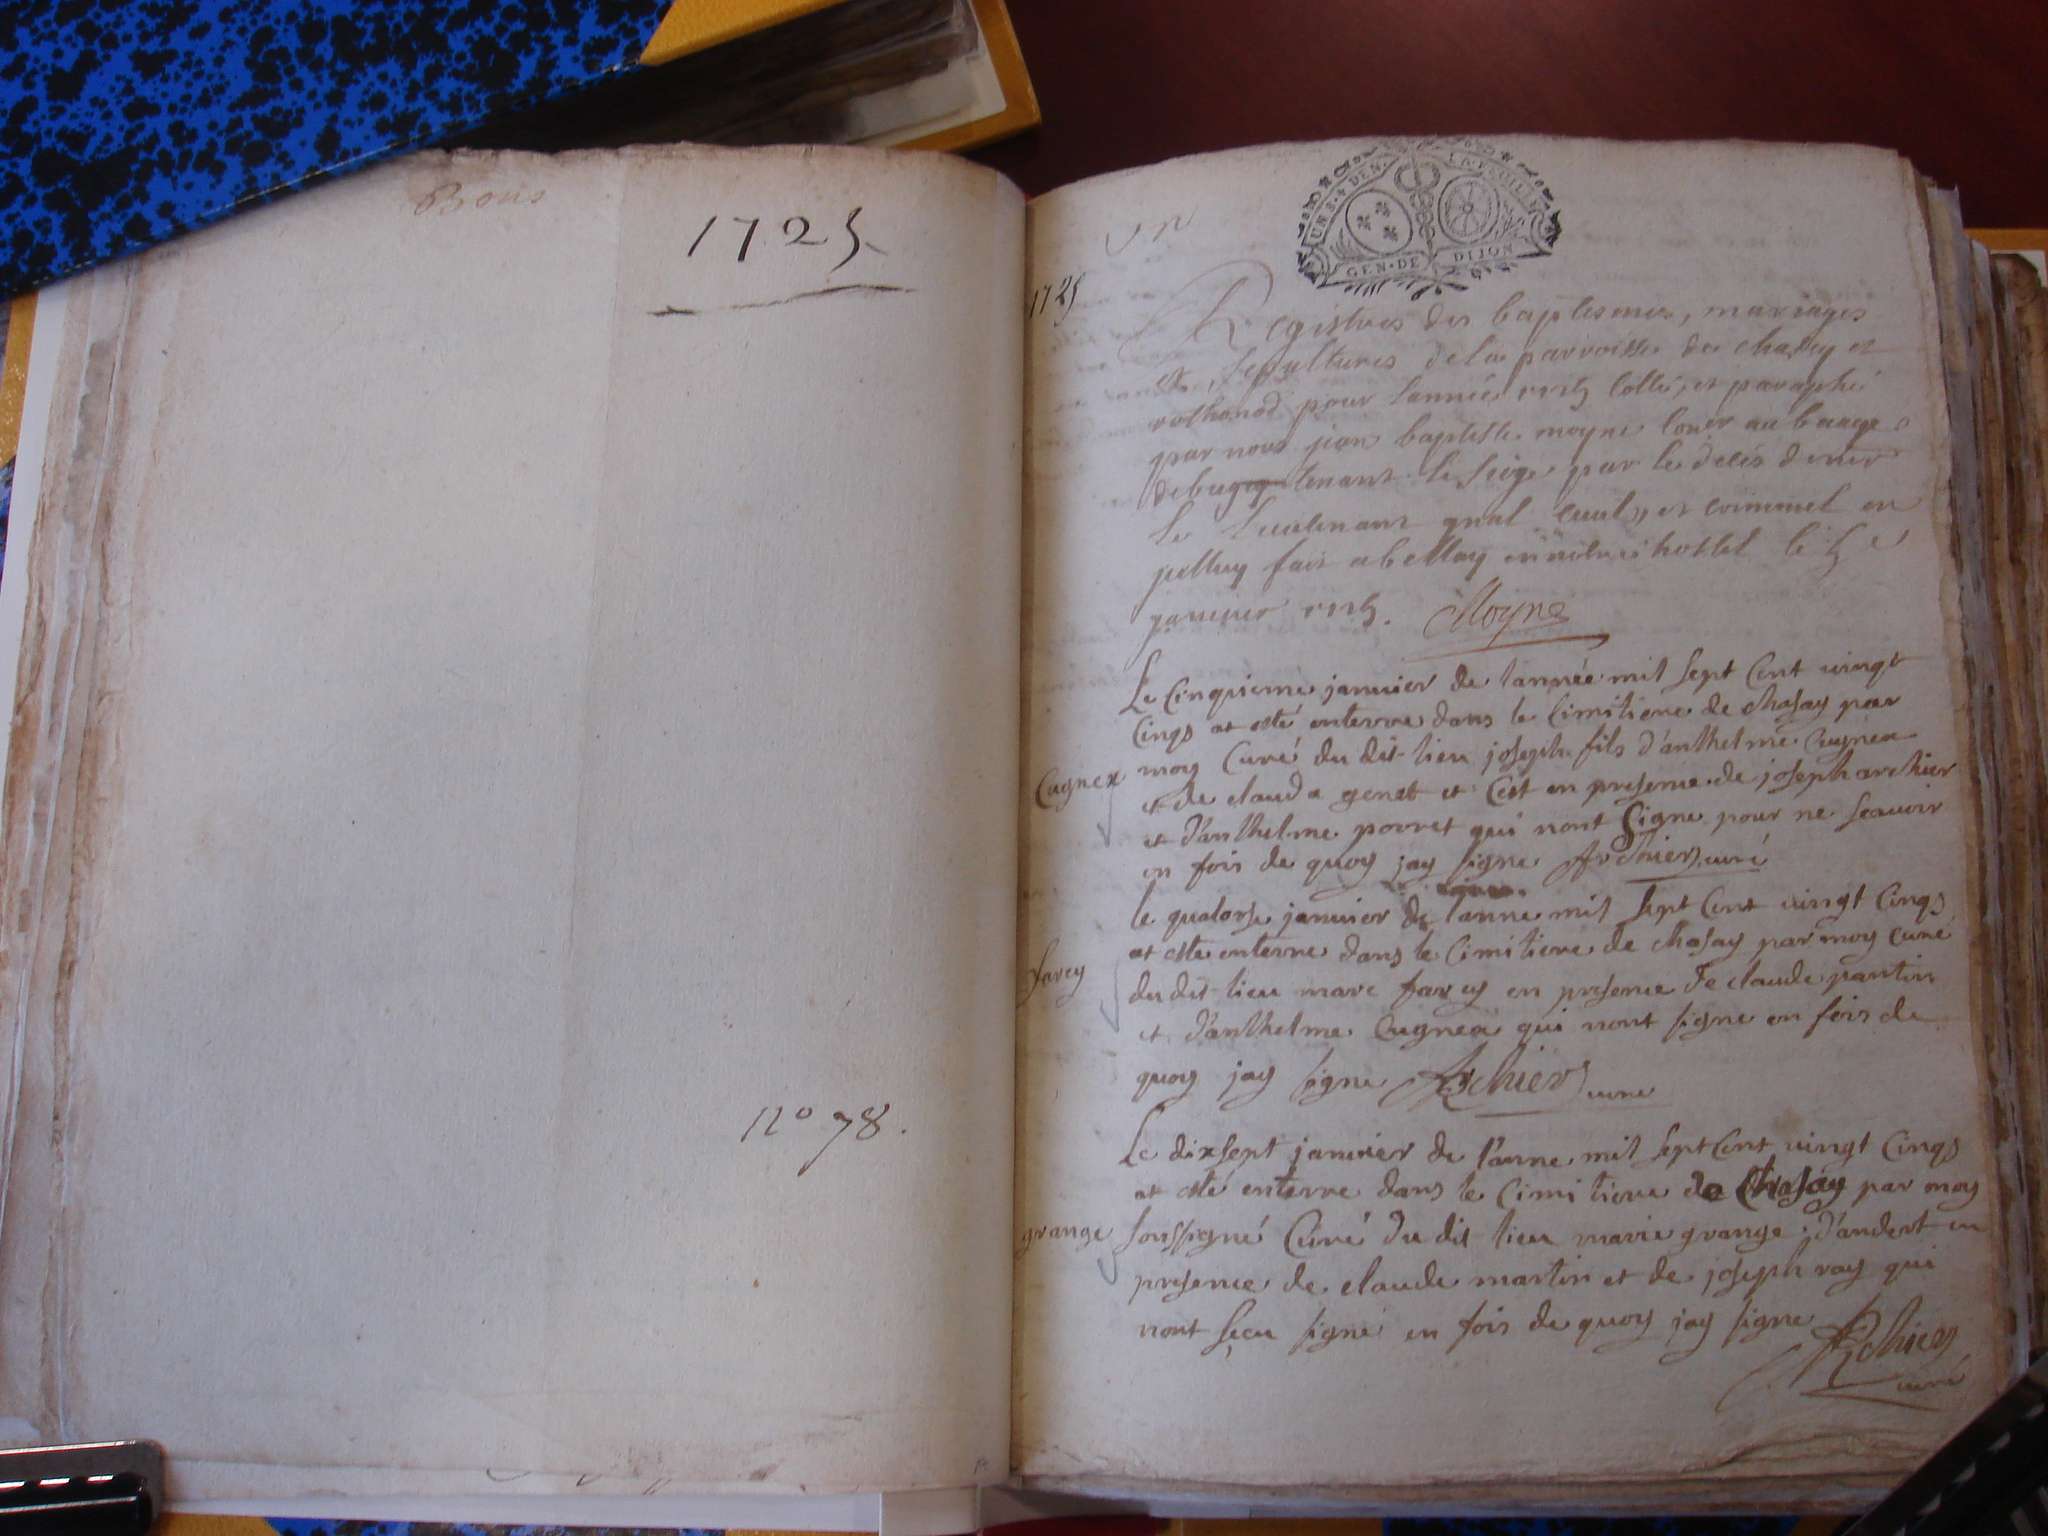 Bons
1725
n° 78.
un
UN S. 4 DEN. LA FEUILLE
GEN. DE DIJON
1725
Registres des baptesmes, mariages
et sepultures de la parroisse de chasey et
rothonod pour lannée 1725 Cotté, et paraphé
par nous jean baptiste moyne
debugey tenant le siege par le deces de mr
le Lieutenant gnal Civil, et criminel en
fait a belley en nostre hostel le 5e
janvier 1725. Moyne
Le Cinquieme janvier de lannée mil sept Cent vingt
Cinqs at esté enterre dans le Cimitiere de chasay par
Cugnex moy Curé du dit lieu joseph fils d'anthelme Cugnex
et de clauda genet et Cest en presence de joseph archier
et d'anthelme porret qui nont signe pour ne scavoir
en fois de quoy jay signe Archier curé
le quatorse janvier de lanne mil sept Cent vingt Cinqs
at este enterre dans le Cimitiere de chasay par moy curé
farcy du dit lieu marc farcy en presence de claude pantin
et d'anthelme Cugnex qui nont signe en fois de
quoy jay signe Archier curé
Le dixsept janvier de l'anne mil sept Cent vingt Cinqs
at esté enterre dans le Cimitiere de Chasay par moy
grange soussigné Curé du dit lieu marie grange d'andert en
presence de claude martin et de joseph ray qui
nont sçeu signé en fois de quoy jay signe
Archier
curé